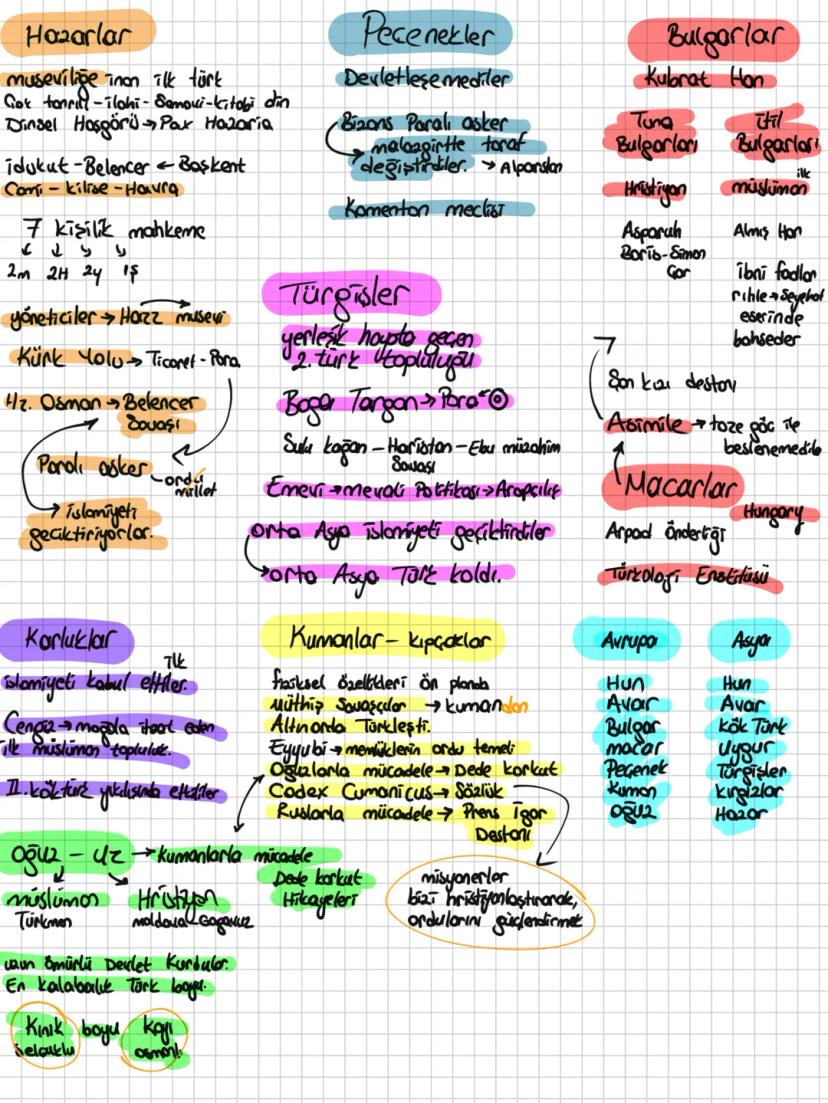 Hazarlar
museviliğe inan ilk türk
Çok tanrılı - ilahi - Semavi - kitabi din
Dinsel Hoşgörü → Pax Hazaria
idukut - Belencer ← Başkent
Cami - kilise - Havra
7 kişilik mahkeme
2m 2H 2y 1ş
yöneticiler → Hazz musevi
Kürk Yolu → Ticaret - Para
Hz. Osman → Belencer
Savaşı
Paralı asker
ordu
millet
→ islamiyeti
geciktiriyorlar.
Peçenekler
Devletleşemediler
Bizans Paralı asker
malazgirtte taraf
değiştirdiler. → Alparslan
Komenton meclisi
Bulgarlar
Kubrat Han
Tuna
Bulgarları
Hristiyan
Asparuh
Boris - Simon
Çar
İtil
Bulgarları
ilk
müslüman
Almış Han
ibni fadlan
rıhle → Seyahat
eserinde
bahseder
Şan kızı destanı
Asimile → taze göç ile
beslenemedile
Macarlar
Hungary
Arpad Önderliği
Türkoloji Enstitüsü
Türgişler
yerleşik hayata geçen
2. türk topluluğu
Baga Targan → Para
Sulu kağan - Haristan - Ebu müzahim
Savaşı
Emevi → mevali Politikası → Arapçılış
orta Asya islamiyeti geçiktirdiler
orta Asya Türk kaldı.
Karluklar
ilk
islamiyeti kabul ettiler.
Cengiz → moğola itaat eden
ilk müslüman topluluk.
II. köktürk yıkılışında etkililer
Kumanlar - kıpçaklar
fiziksel özellikleri ön planda
müthiş Savaşçılar → kumandan
Altınorda Türkleşti.
Eyyubi → memlüklerin ordu temeli
Oğuzlarla mücadele → Dede korkut
Codex Cumanicus → Sözlük
Ruslarla mücadele → Prens İgor
Destanı
misyonerler
bizi hristiyanlaştırarak,
ordularını güçlendirmek
Avrupa
Hun
Avar
Bulgar
macar
Peçenek
Kuman
Oğuz
Asya
Hun
Avar
Kök Türk
Uygur
Türgişler
kırgızlar
Hazar
Oğuz - Uz → Kumanlarla mücadele
Dede korkut
Hikayeleri
müslüman
Türkmen
Hristiyan
moldova Gagavuz
uzun ömürlü Devlet Kurdular.
En kalabalık Türk boyu.
Kınık boyu kayı
selçuklu osmanlı